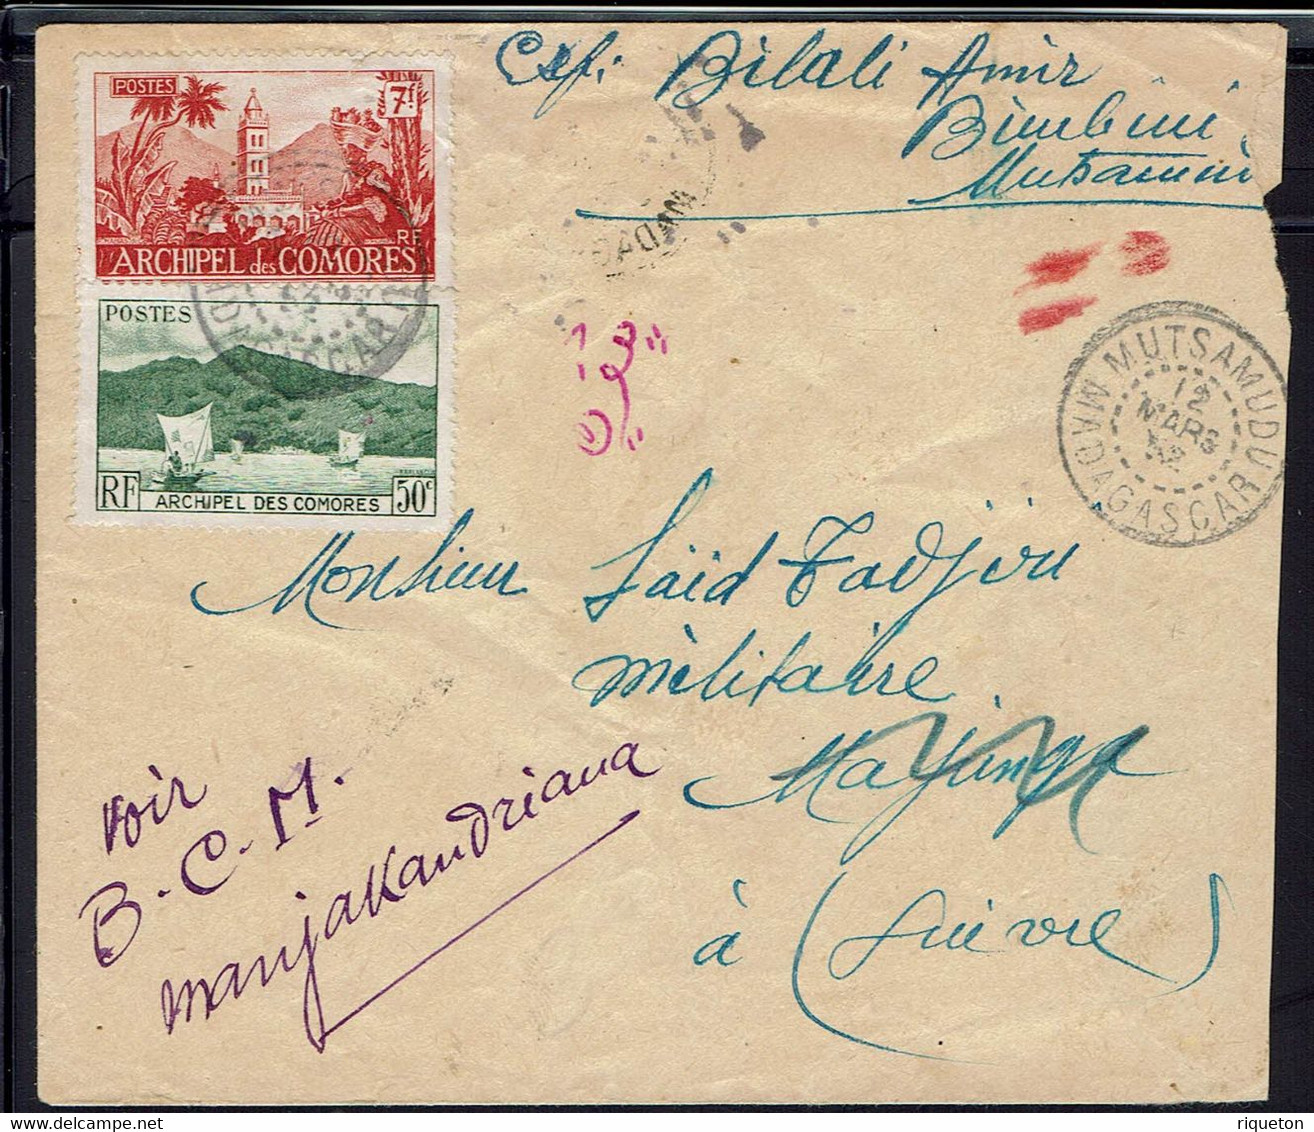 Exp: Bilali Amir
Bimbini
Mutsamudu
POSTES
7f
RF
ARCHIPEL des COMORES
POSTES
RF
ARCHIPEL DES COMORES
50c
MUTSAMUDU
12
MARS
MADAGASCAR
Monsieur Saïd Tadjiri
militaire
Majunga
à (suivre)
voir
B.C.M.
manjakandriana
riqueton
delcampe.net